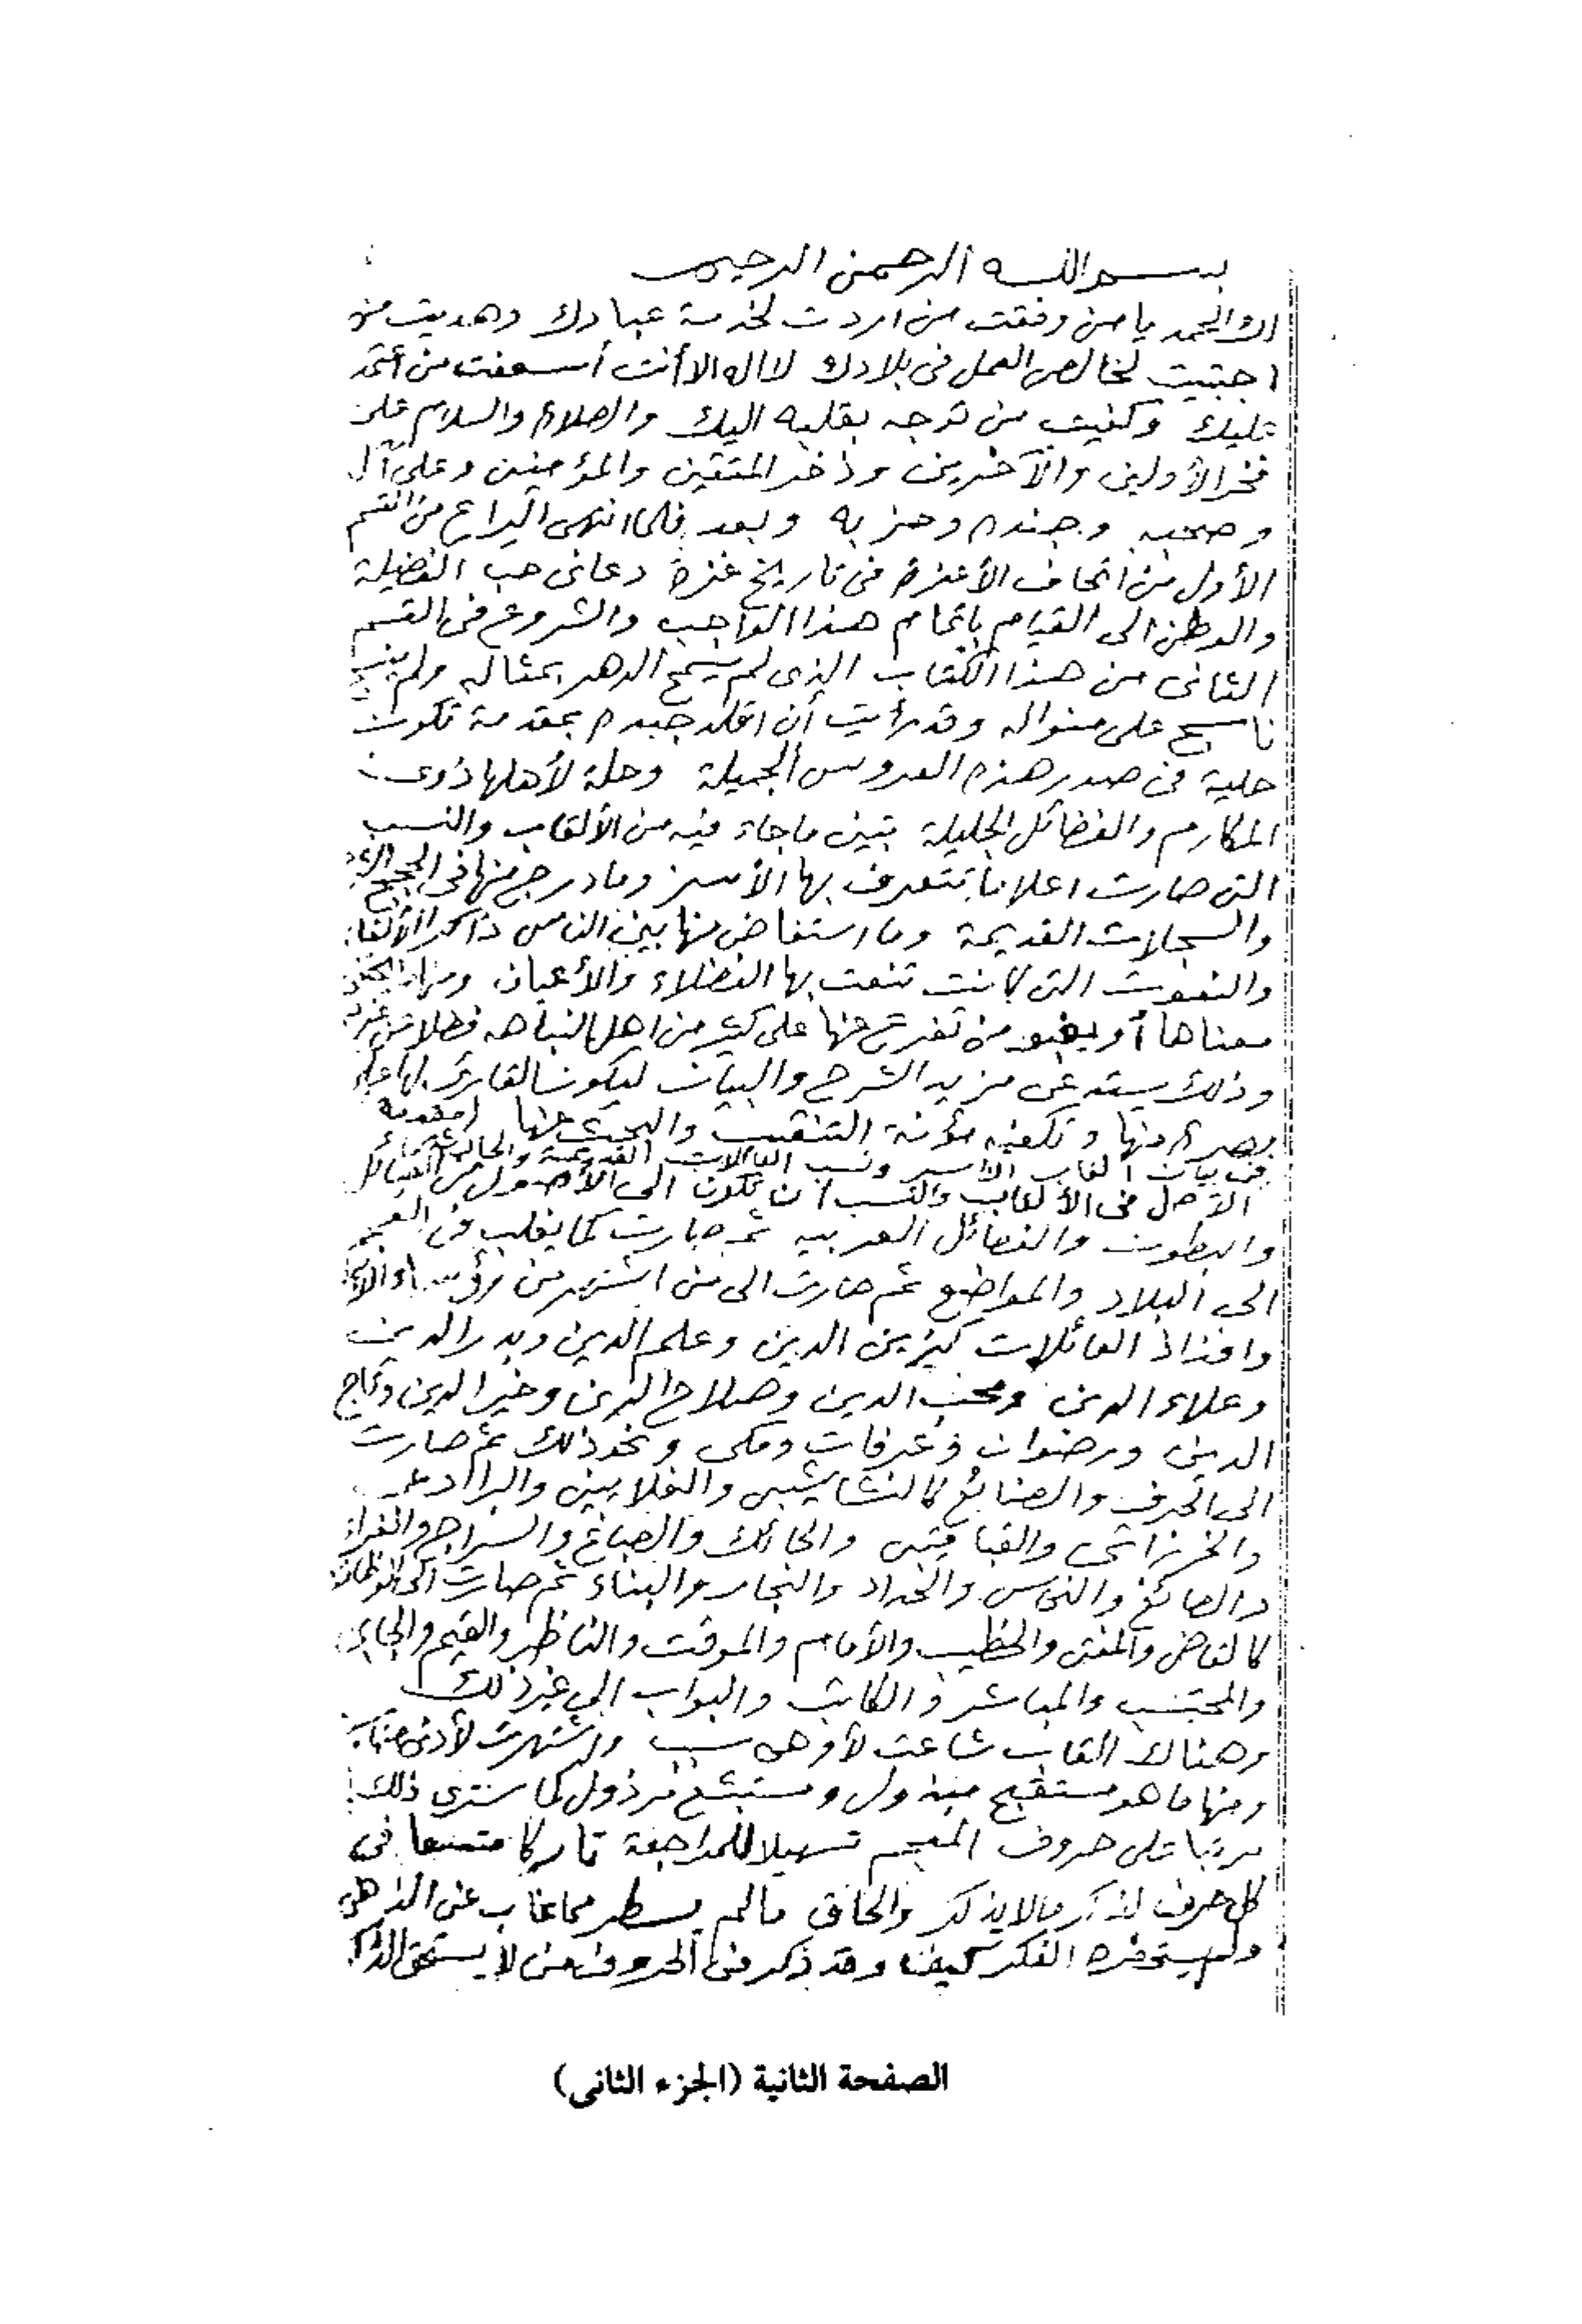 بسم الله الرحمن الرحيم
لك الحمد يا من وفقت من اردت لخدمة عبادك وهديت من
اجتبيت لخالص العمل فى بلادك لا اله الا أنت أسعفت من أعتمد
عليك وكفيت من توجه بقلبه اليك والصلاة والسلام على
فخر الأولين والآخرين وذخر المتقين والمؤمنين وعلى آل
وصحبه وجنده وحزبه وبعد فلما انتهى اليراع من القسم
الأول من اتحاف الأعزة فى تاريخ غزة دعانى حب الفضيلة
والوطن الى القيام باتمام هذا الواجب والشروع فى القسم
الثانى من هذا الكتاب الذى لم يسمح الدهر بمثاله ولم ينسج
ناسج على منواله وقد رأيت أن اقلد جيده بمقدمة تكون
حلية فى صدر هذه العروس الجميلة وحلة لأهلها ذوى
المكارم والفضائل الجليلة تبين ما جاء فيه من الألقاب والنسب
التى صارت اعلاما تتعرف بها الأسر وما درج منها فى الحجج
والسجلات القديمة وما استفاض منها بين الناس ذاكرا الألقاب
والنعوت التى كانت تنعت بها الفضلاء والأعيان ومنها
معناها أو من تفرع عنها على كثير من اهل النباهه فضلا عن غيرهم
وذلك يستدعى مزيد الشرح والبيان ليكون القارئ لها على
بصيرة منها وتكفيه مؤنة التنقيب والبحث عنها (مقدمة
فى بيان القاب الأسر ونسب العائلات القديمة والحالية)
الأصل فى الألقاب والنسب ان تكون الى الأصول من القبائل
والبطون والفصائل العربيه ثم صارت كما يغلب فى العجم
الى البلاد والمواضع ثم صارت الى من اشتهر من رؤساء
وافذاذ العائلات كزين الدين وعلم الدين وبدر الدين
وعلاء الدين ومحب الدين وصلاح الدين وخير الدين وتاج
الدين ورضوان وعرفات ومكى ونحو ذلك ثم صارت
الى الحرف والصنائع كالنشاشيبى والغلايينى والبرادعى
والخزناتى والقباقيبى والحائك والصباغ والسراج والفراء
والصائغ والنحاس والحداد والنجار والبناء ثم صارت الى الوظائف
كالقاضى والمفتى والخطيب والأمام والموقت والناظر والقيم والجابى
والمحتسب والمباشر والكاتب والبواب الى غير ذلك
وهناك القاب شاعت لأوهى سبب واشتهرت لأدنى
ومنها ما هو مستقبح مبذول ومستبشع مرذول كما سترى ذلك
مرتبا على حروف المعجم تسهيلا للمراجعة تاركا متسعا فى
كل حرف لذكر ما لا يذكر والحاق ما لم يسطر مما غاب عن الذهن
ولم يستحضره الفكر كيف وقد ذكر فى الحروف من لا يستحق الذكر
الصفحة الثانية (الجزء الثانى)